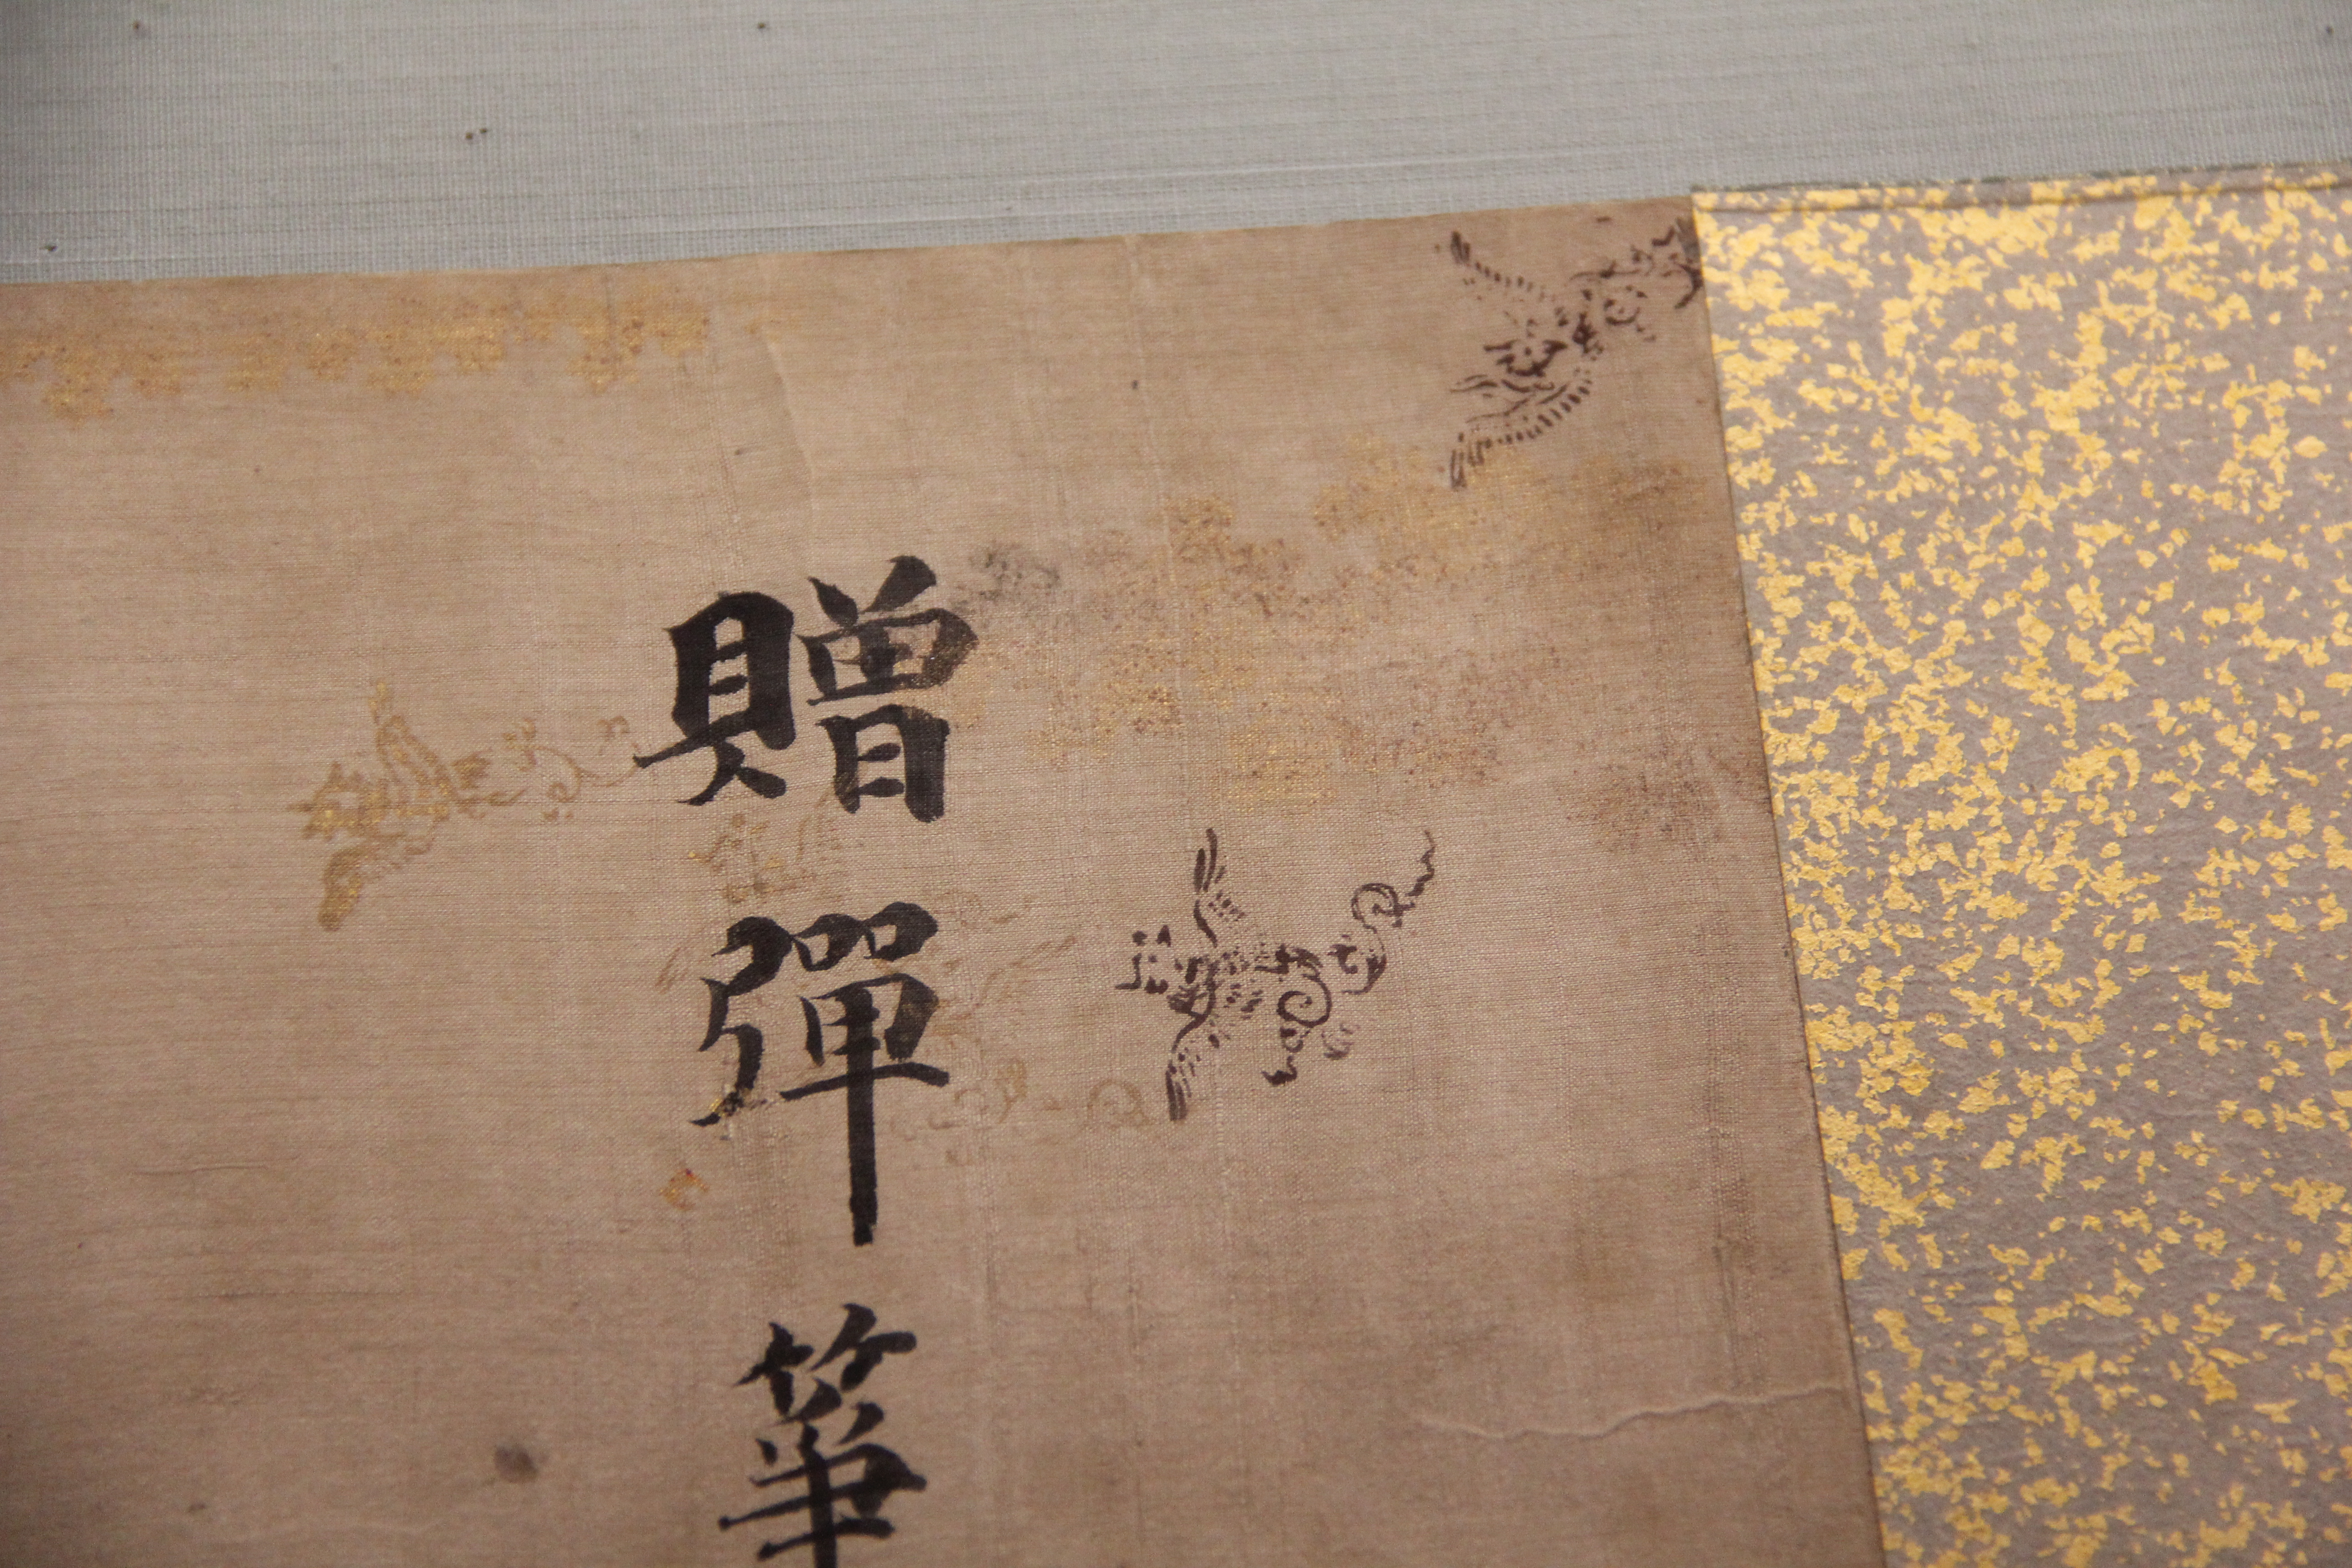 贈彈箏